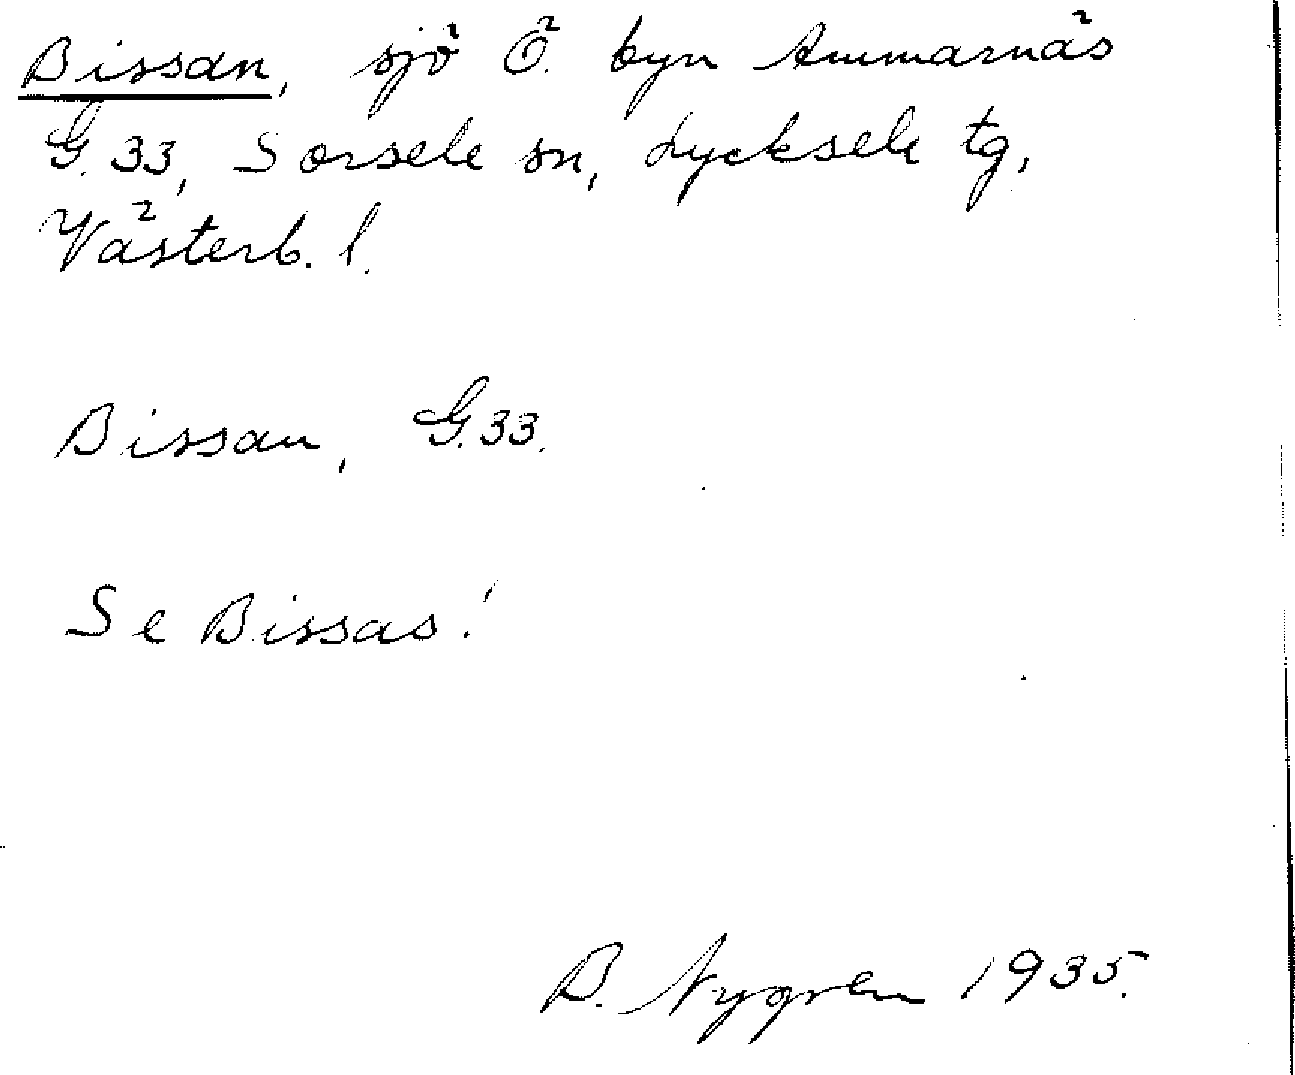 Bissan, sjö Ö. byn Ammarnäs
G. 33, Sorsele sn, Lycksele tg,
Västerb. l.
Bissan, G. 33.
Se Bissas!
B. Nygren 1935.